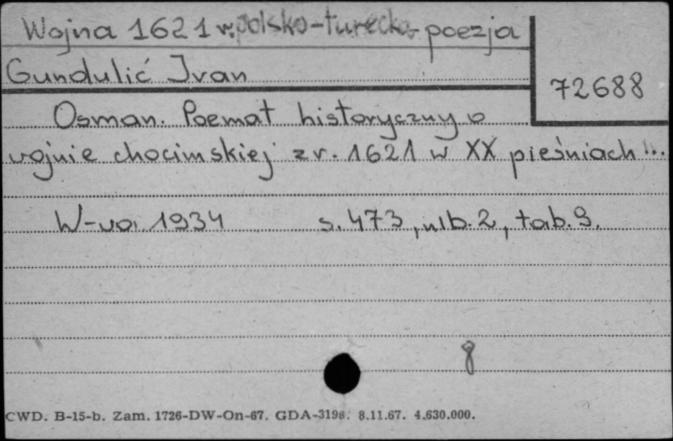 Wojna 1621 r. polsko-turecka-poezja
Gundulić Ivan
72688
Osman. Poemat historyczny o
wojnie chocimskiej z r. 1621 w XX pieśniach...
W-wa 1934 s. 473, nlb. 2, tab. 9.
8
CWD. B-15-b. Zam. 1726-DW-On-67. GDA-3198. 8.11.67. 4.630.000.